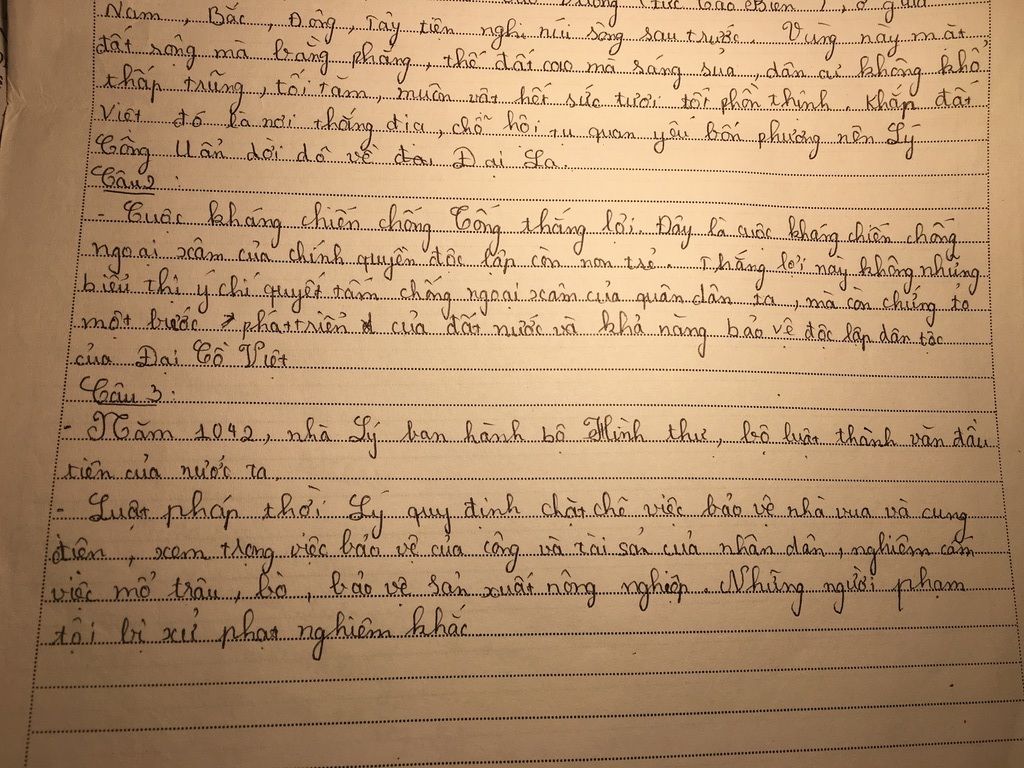 Nam, Bắc, Đông, Tây tiện nghi núi sông sau trước. Vùng này mặt
đất rộng mà bằng phẳng, thế đất cao mà sáng sủa, dân cư không khổ
thấp trũng, tối tăm, muôn vật hết sức tươi tốt phồn thịnh. Khắp đất
Việt đó là nơi thắng địa, chỗ hội tụ quan yếu bốn phương nên Lý
Công Uẩn dời đô về Đại La.
Câu 2 :
- Cuộc kháng chiến chống Tống thắng lợi. Đây là cuộc kháng chiến chống
ngoại xâm của chính quyền độc lập còn non trẻ. Thắng lợi này không những
biểu thị ý chí quyết tâm chống ngoại xâm của quân dân ta, mà còn chứng tỏ
một bước phát triển của đất nước và khả năng bảo vệ độc lập dân tộc
của Đại Cồ Việt
Câu 3 :
- Năm 1042, nhà Lý ban hành bộ Hình thư, bộ luật thành văn đầu
tiên của nước ta.
- Luật pháp thời Lý quy định chặt chẽ việc bảo vệ nhà vua và cung
điện, xem trọng việc bảo vệ của công và tài sản của nhân dân, nghiêm cấm
việc mổ trâu, bò, bảo vệ sản xuất nông nghiệp. Những người phạm
tội bị xử phạt nghiêm khắc